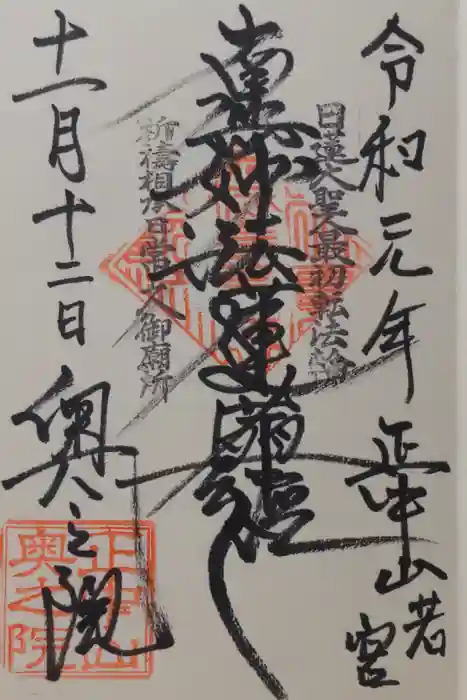 令和元年 正中山若宮
日蓮大聖人最初転法輪
南無妙法蓮華経
祈禱相承日常上人御廟所
十一月十二日 奥之院
正中山
奥之院